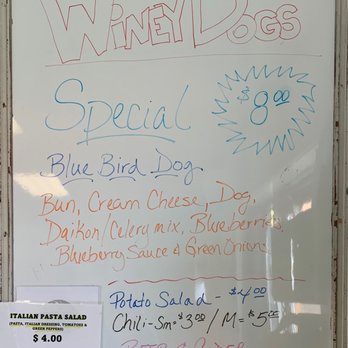 WINEY DOGS
Special
$8.00
Blue Bird Dog
Bun, Cream Cheese, Dog,
Daikon/Celery mix, Blueberries,
Blueberry Sauce & Green Onions
Potato Salad - $4.00
Chili - Sm = $3.00 / M = $5.00
ITALIAN PASTA SALAD
(PASTA, ITALIAN DRESSING, TOMATOES &
GREEN PEPPERS)
$ 4.00